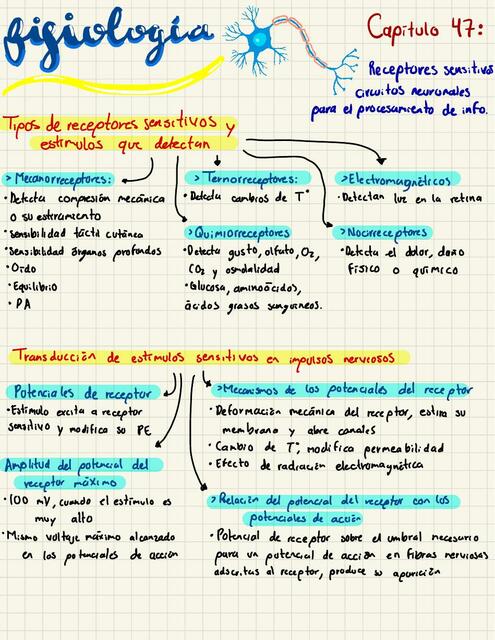 fisiología
Capítulo 47:
Receptores sensitivos
circuitos neuronales
para el procesamiento de info.
Tipos de receptores sensitivos y
estímulos que detectan
> Mecanorreceptores:
• Detecta compresión mecánica
o su estiramento
• sensibilidad táctil cutánea
• Sensibilidad órganos profundos
• Oído
• Equilibrio
• PA
> Termorreceptores:
• Detecta cambios de T°
> Quimiorreceptores
• Detecta gusto, olfato, O₂,
CO₂ y osmolalidad
• Glucosa, aminoácidos,
ácidos grasos sanguíneos.
> Electromagnéticos
• Detectan luz en la retina
> Nocirreceptores
• Detecta el dolor, daño
físico o químico
Transducción de estímulos sensitivos en impulsos nerviosos
Potenciales de receptor
• Estímulo excita a receptor
sensitivo y modifica su PE
Amplitud del potencial del
receptor máximo
• 100 mV, cuando el estímulo es
muy alto
• Mismo voltaje máximo alcanzado
en los potenciales de acción
> Mecanismos de los potenciales del receptor
• Deformación mecánica del receptor, estira su
membrana y abre canales
• Cambio de T°, modifica permeabilidad
• Efecto de radiación electromagnética
> Relación del potencial del receptor con los
potenciales de acción
• Potencial de receptor sobre el umbral necesario
para un potencial de acción en fibras nerviosas
adscritas al receptor, produce su aparición